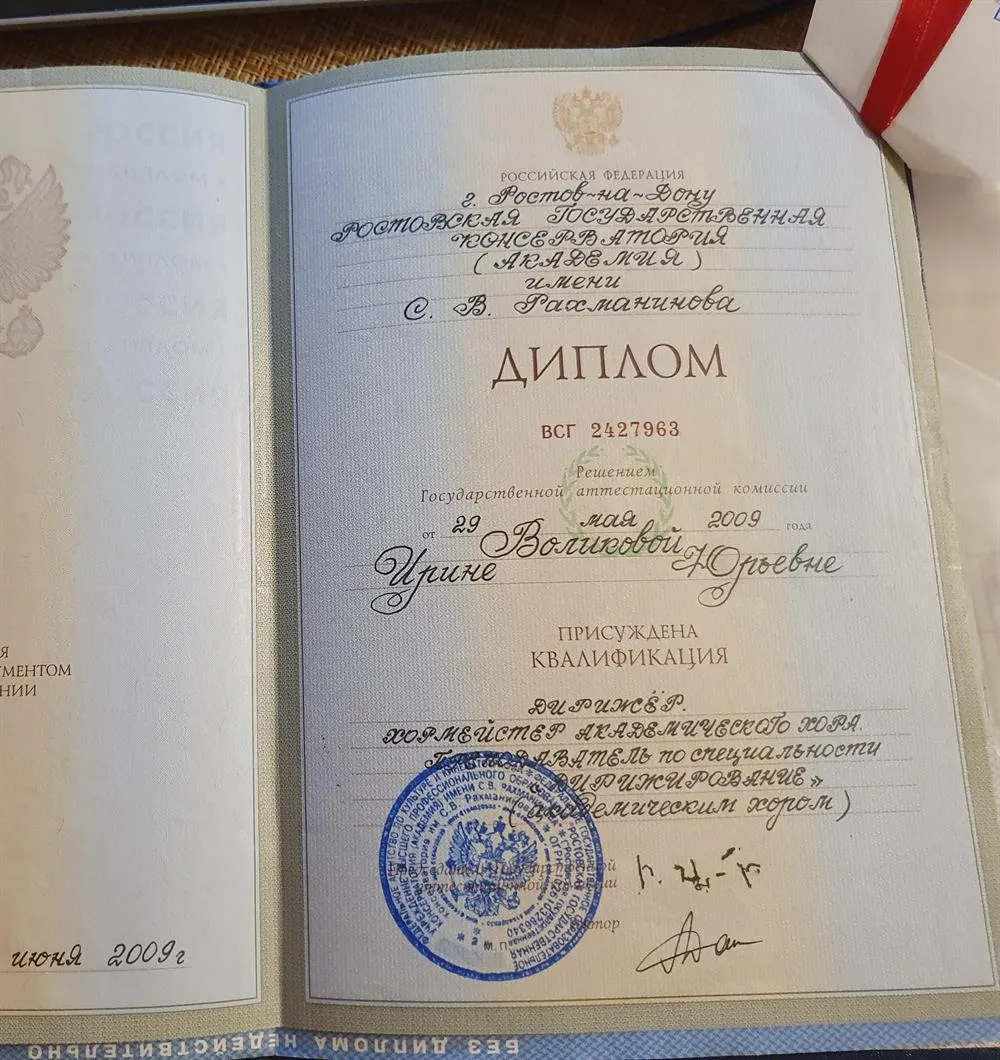 РОССИЙСКАЯ ФЕДЕРАЦИЯ
г. Ростов-на-Дону
РОСТОВСКАЯ ГОСУДАРСТВЕННАЯ
КОНСЕРВАТОРИЯ
(АКАДЕМИЯ)
имени
С. В. Рахманинова
ДИПЛОМ
ВСГ 2427963
Решением
Государственной аттестационной комиссии
от 29 мая 2009 года
Воликовой
Ирине Юрьевне
ПРИСУЖДЕНА
КВАЛИФИКАЦИЯ
ДИРИЖЁР.
ХОРМЕЙСТЕР АКАДЕМИЧЕСКОГО ХОРА.
ПРЕПОДАВАТЕЛЬ по специальности
ДИРИЖИРОВАНИЕ»
(академическим хором)
УМЕНТОМ
НИИ
июня 2009г
БЕЗ ДИПЛОМА НЕДЕЙСТВИТЕЛЬНО